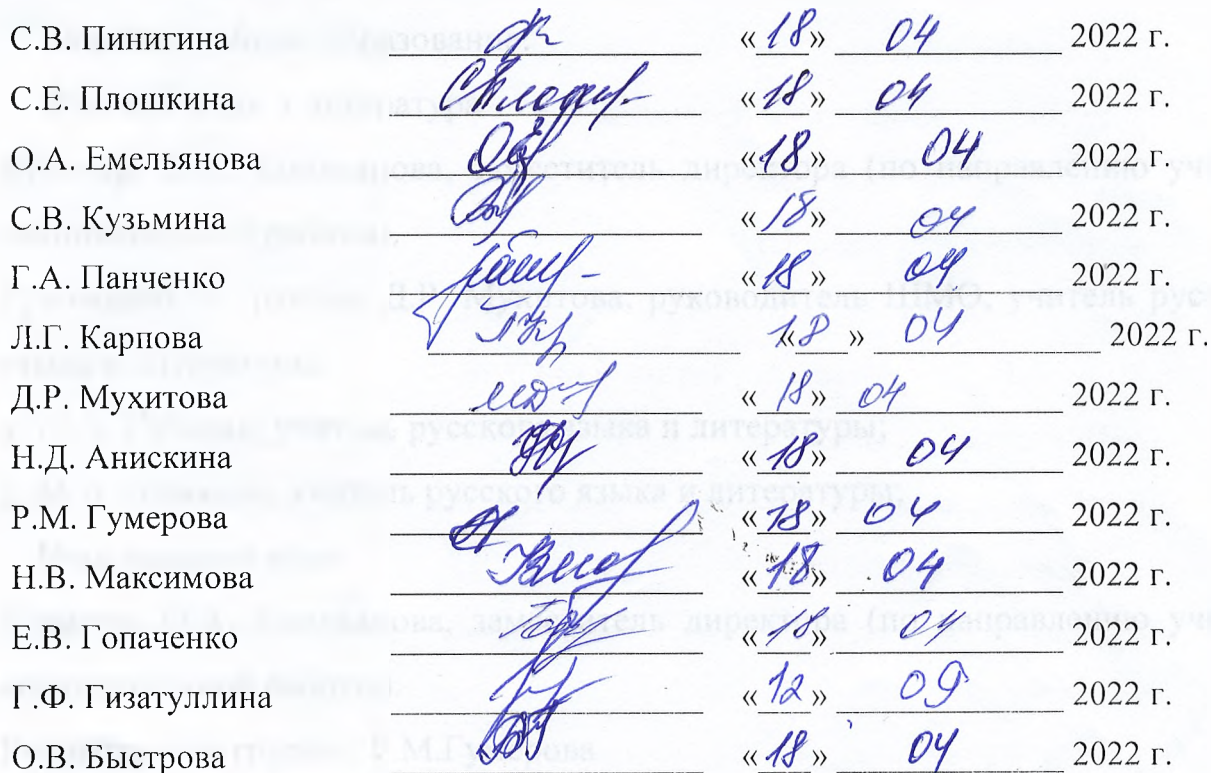 С.В. Пинигина «18» 04 2022 г.
С.Е. Плошкина «18» 04 2022 г.
О.А. Емельянова «18» 04 2022 г.
С.В. Кузьмина «18» 04 2022 г.
Г.А. Панченко «18» 04 2022 г.
Л.Г. Карпова «18» 04 2022 г.
Д.Р. Мухитова «18» 04 2022 г.
Н.Д. Анискина «18» 04 2022 г.
Р.М. Гумерова «18» 04 2022 г.
Н.В. Максимова «18» 04 2022 г.
Е.В. Гопаченко «18» 04 2022 г.
Г.Ф. Гизатуллина «12» 09 2022 г.
О.В. Быстрова «18» 04 2022 г.